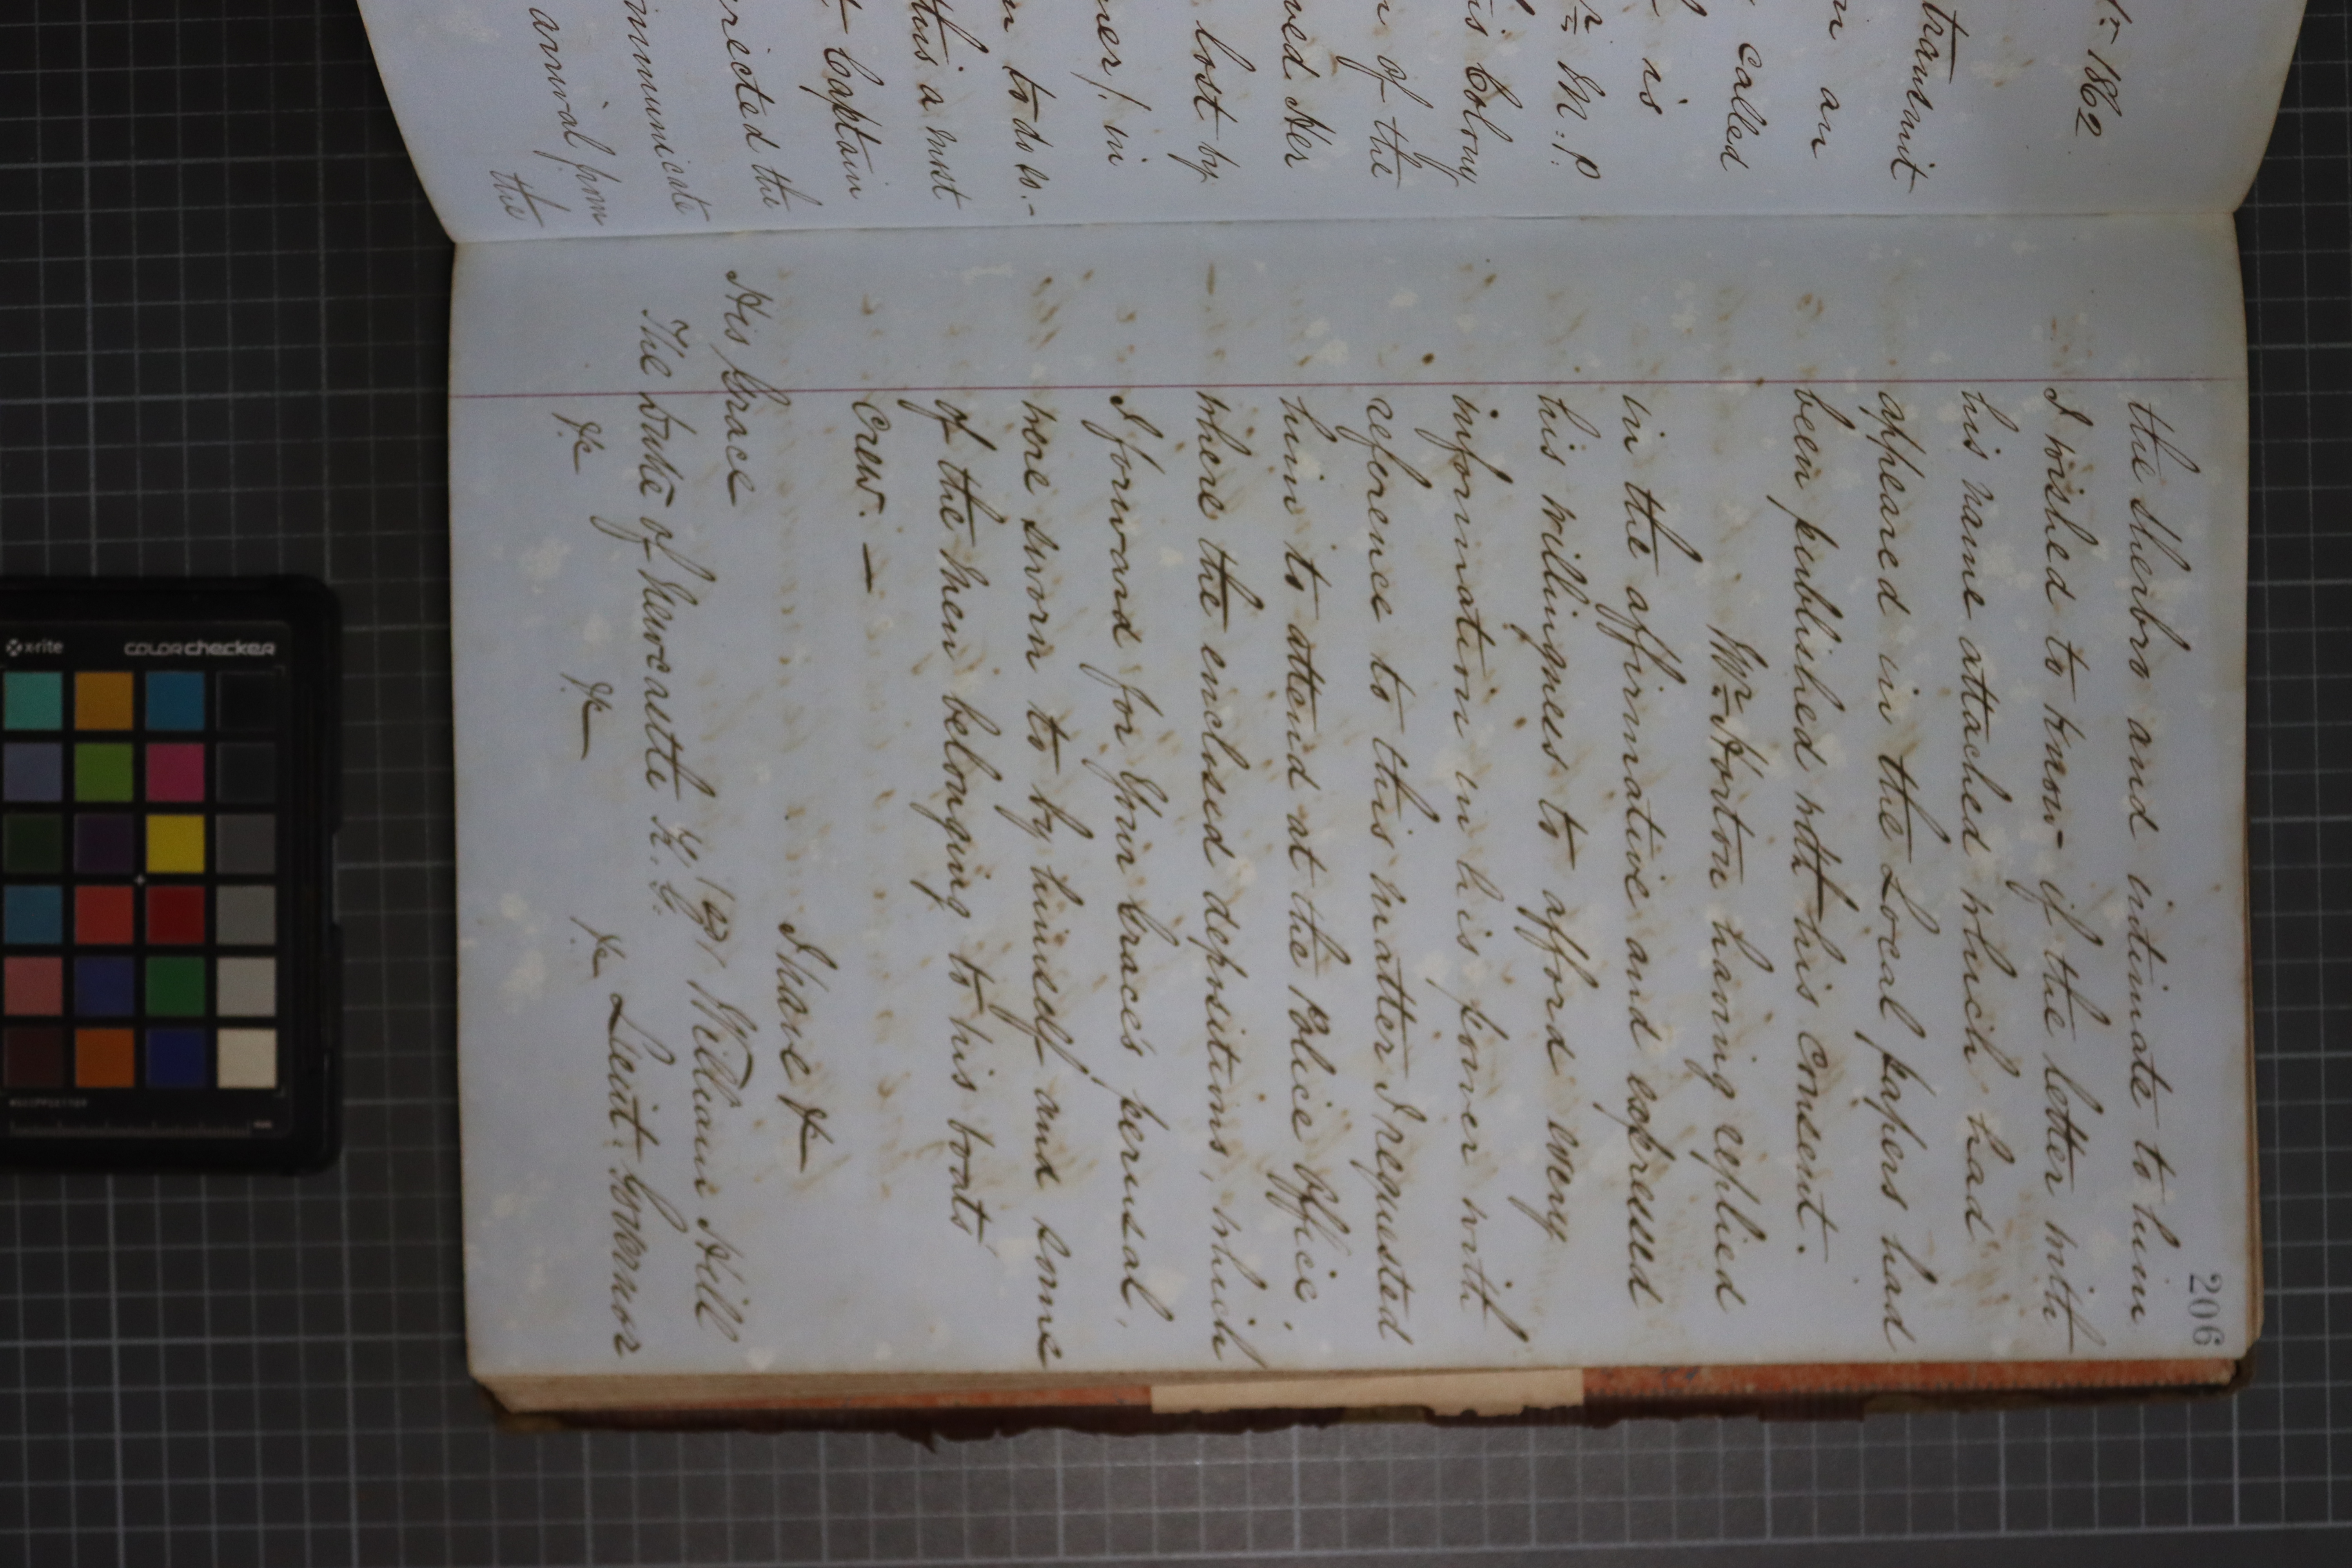 1862
transmit
an
called
is
Mr M. P
is Colony
of the
ved Her
lost by
ner/. in
to do so.-
this a most
Captain
rected the
mmunicate
arrival from
the
206
the Sherbro and intimate to him
I wished to know if the letter with
his name attached which had
appeared in the Local papers had
been published with his consent.
Mr Horton having replied
in the affirmative and expressed
his willingness to afford every
information in his power with
reference to this matter I requested
him to attend at the Police Office,
where the enclosed depositions, which
I forward for Your Grace's perusal,
were sworn to by himself and some
of the men belonging to his boats
crew. —
I have &c
His Grace
The Duke of Newcastle K. G.
&c &c &c
William Hill
Lieut. Governor
x-rite
colorchecker